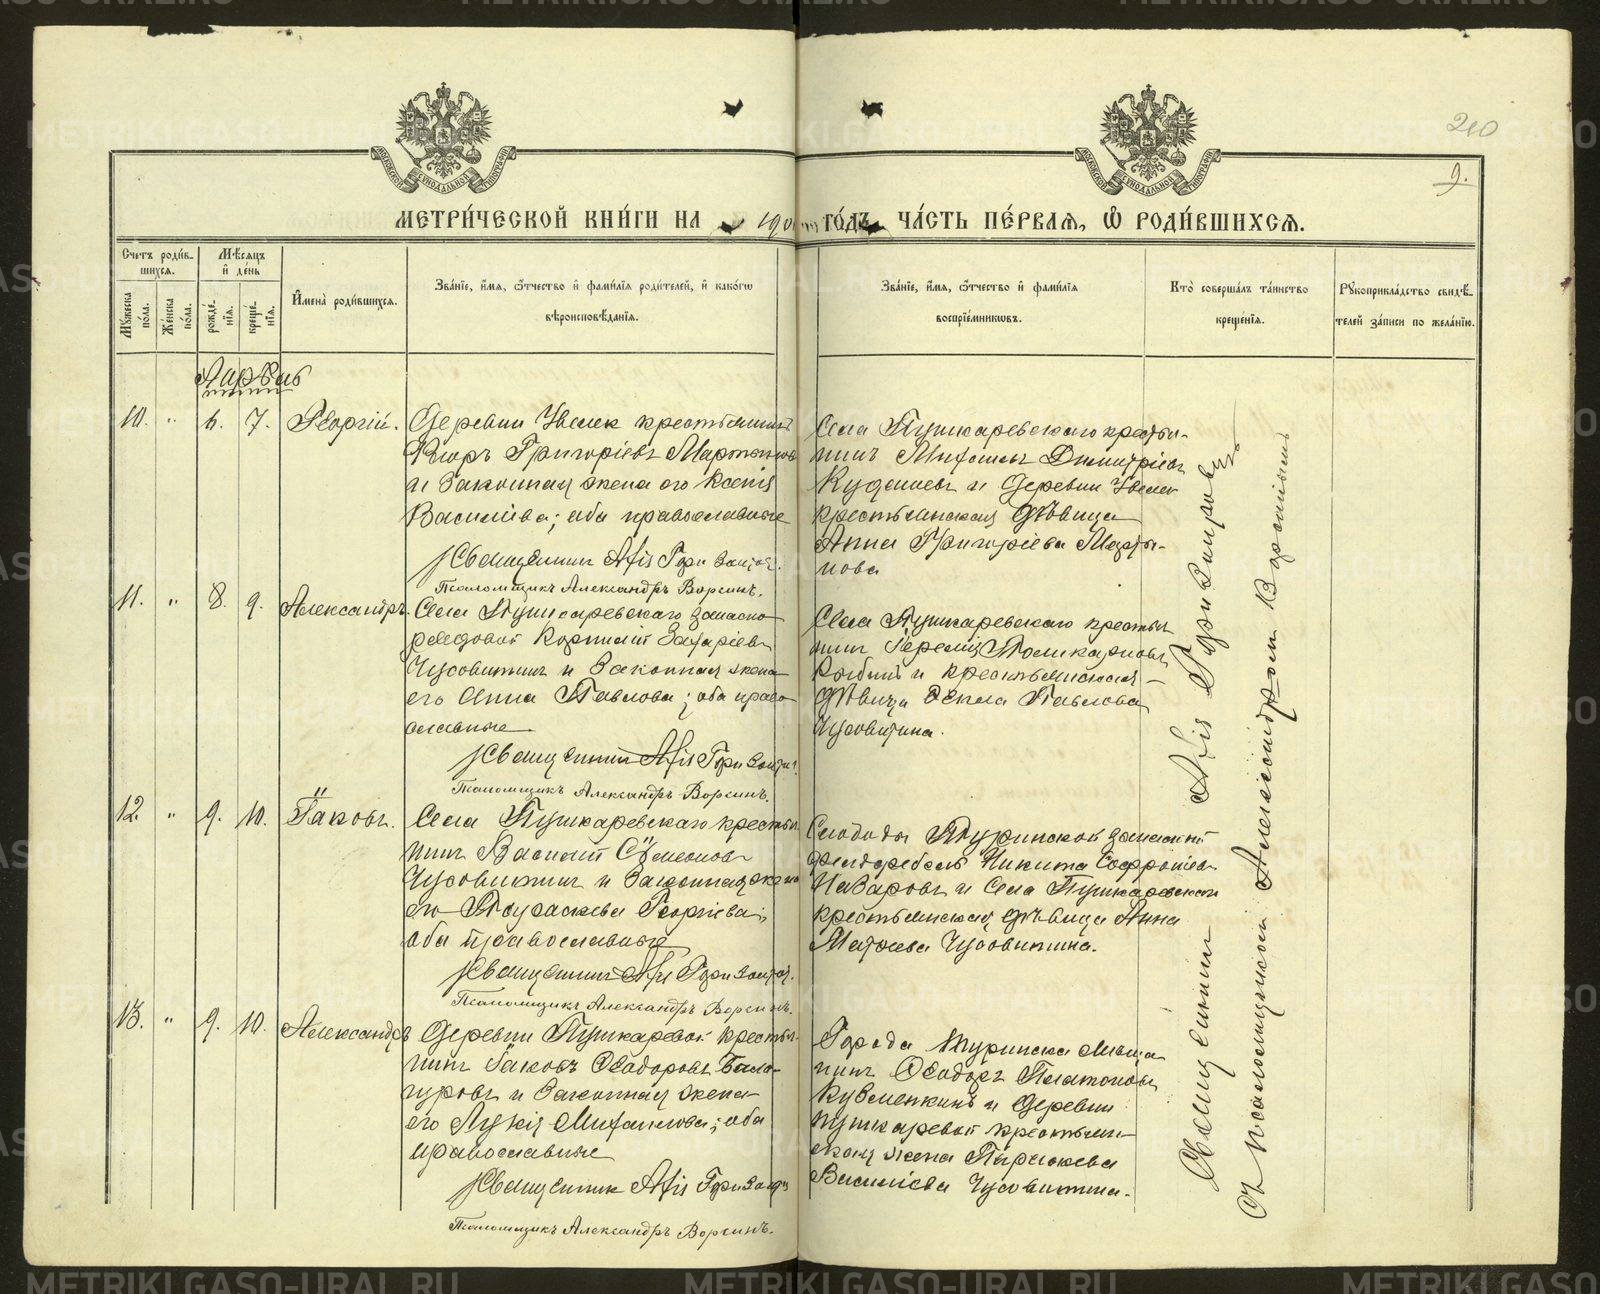 210
9.
МЕТРИ́ЧЕСКОЙ КНИ́ГИ НА 190 ГО́ДЪ, ЧА́СТЬ ПЕ́РВАЯ, Ѡ҆ РОДИ́ВШИХСѦ.
Счетъ роди́вшихся.
Мѣ́сяцъ и҆ де́нь
Му́жеска по́ла.
Же́нска по́ла.
рожде́нїя.
креще́нїя.
И҆мена̀ роди́вшихся.
Зва́нїе, и҆́мя, ѻ҆́тчество и҆ фами́лїя роди́телей, и҆ како́гѡ
вѣроисповѣ́данїя.
Зва́нїе, и҆́мя, ѻ҆́тчество и҆ фами́лїя
воспрїе́мникѡвъ.
Кто̀ соверша́лъ та́инство
креще́нїя.
Рꙋкоприкла́дство свидѣ́-
телей за́писи по жела́нїю.
Апрѣль
10. " 6. 7. Георгій.
Деревни Увелек крестьянинъ
Егоръ Григоріевъ Мартыновъ
и законная жена его Ксенія
Василіева; оба православные
Священникъ
Псаломщикъ Александръ Ворсинъ.
Села Пушкаревскаго крестья-
нинъ Михаилъ Димитріевъ
и Деревни Увелек
крестьянская дѣвица
Анна Григоріева Марты-
нова
11. " 8. 9. Александръ.
Села Пушкаревскаго запасно-
рядовой Корнилій Захаріевъ
Чусовитинъ и законная жена
его Анна Павлова; оба право-
славные
Священникъ
Псаломщикъ Александръ Ворсинъ.
Села Пушкаревскаго крестья-
нинъ Поликарповъ
и крестьянская
дѣвица Ѳекла Павлова
Чусовитина.
12. " 9. 10. Іаковъ.
Села Пушкаревскаго крестья-
нинъ Василій Сѵмеоновъ
Чусовитинъ и законная жена
его Параскева Георгіева;
оба православные
Священникъ
Псаломщикъ Александръ Ворсинъ.
Слободы Туринской запасный
фельдфебель Никита Софроніевъ
Назаровъ и Села Пушкаревскаго
крестьянская дѣвица Анна
Матѳіева Чусовитина.
13. " 9. 10. Александръ
Деревни Пушкаревой крестья-
нинъ Іаковъ Ѳеодоровъ Бало-
гуровъ и законная жена
его Лукія Михаилова; оба
православные
Священникъ
Псаломщикъ Александръ Ворсинъ.
Города Туринска мѣща-
нинъ Ѳеодоръ Платоновъ
Кузменкинъ и Деревни
Пушкаревой крестьян-
ская жена
Василіева Чусовитина.
Священникъ
Съ псаломщикомъ Александромъ Ворсинымъ
METRIKI.GASO-URAL.RU